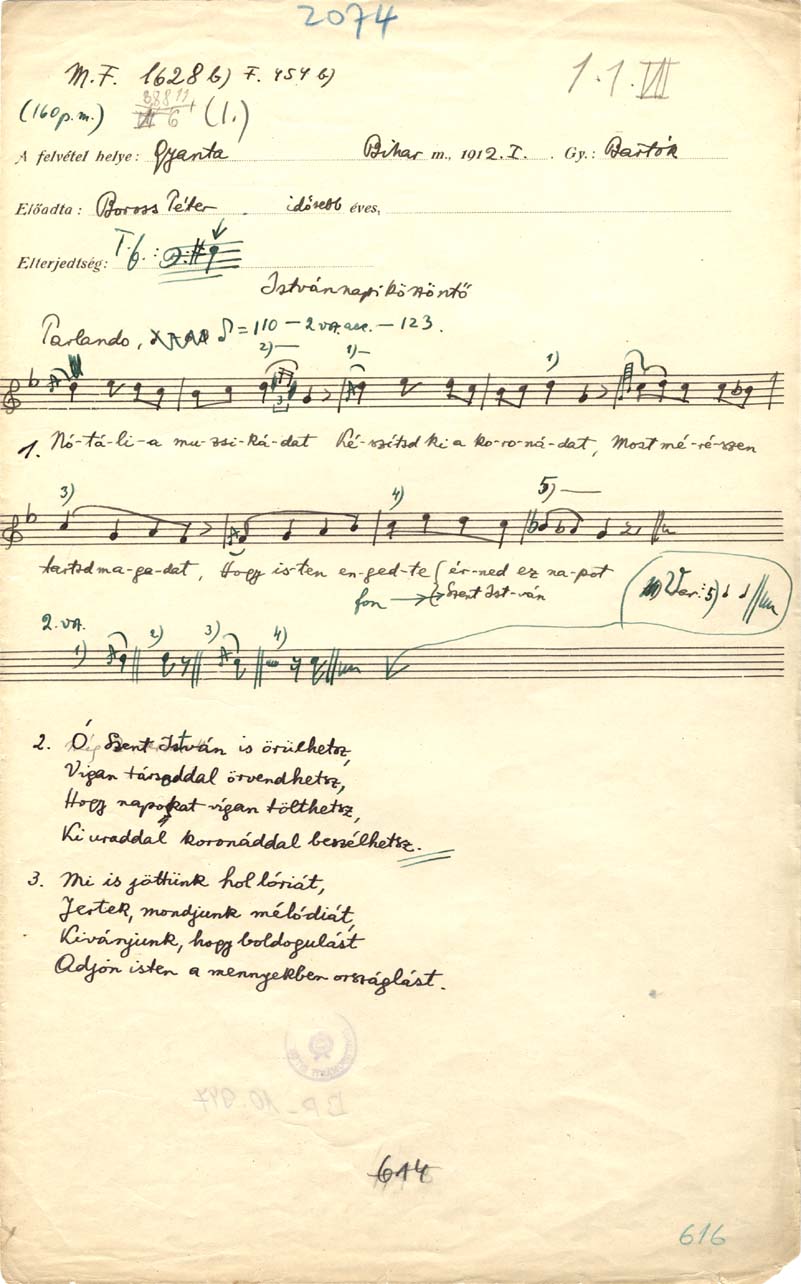 2074
M.F. 1628 b) F. 454 b)
1.1.VII
(160 p.m.) (1.)
A felvétel helye: Gyanta Bihar m., 1912. I. Gy.: Bartók
Előadta: Boross Péter idősebb éves,
Elterjedtség: T.f.:
Istvánnapi köszöntő
Parlando, = 110 – 2 va. acc. – 123.
2)— 1)— 1)
1. Nó-tá-li-a mu-zsi-ká-dat Ké-szítsd ki a ko-ro-ná-dat, Most mé-ré-szen
3) 4) 5)—
tartsd ma-ga-dat, Hogy is-ten en-ged-te ér-ned ez na-pot
fon → Szent Ist-ván
Var: 5)
2. va.
1) 2) 3) 4)
2. Ó Szent István is örülhetsz,
Vigan társoddal örvendhetsz,
Hogy napokat vígan tölthetsz,
Ki uraddal koronáddal beszélhetsz.
3. Mi is jöttünk hol lóriát,
Jertek, mondjunk mélódiát,
Kivánjunk, hogy boldogulást
Adjon isten a mennyekben országlást.
614
616